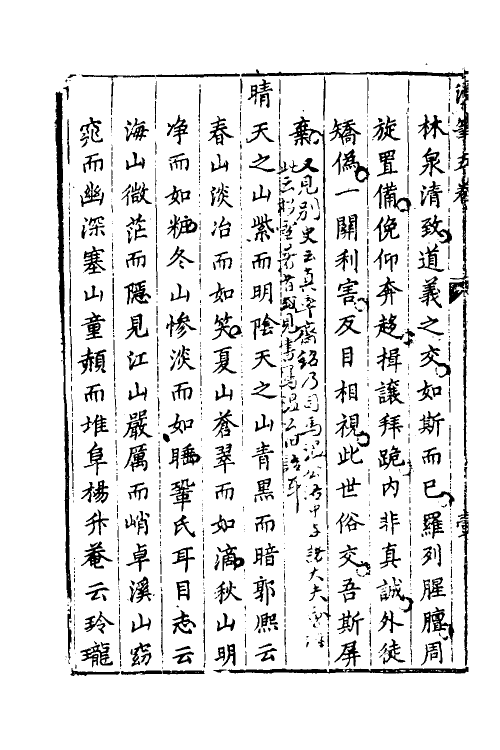 林泉清致道義之交如斯而已羅列腥膻周
旋置備俛仰奔趍揖讓拜跪內非真誠外徒
矯偽一關利害反目相視此世俗交吾斯屏
棄
又見別史云真率齋銘乃司馬溫公
晴天之山紫而明陰天之山青黑而暗郭凞云
春山淡冶而如笑夏山蒼翠而如滴秋山明
净而如粧冬山慘淡而如睡鞏氏耳目志云
海山微茫而隱見江山嚴厲而峭卓溪山窈
窕而幽深塞山童頳而堆阜楊升菴云玲瓏